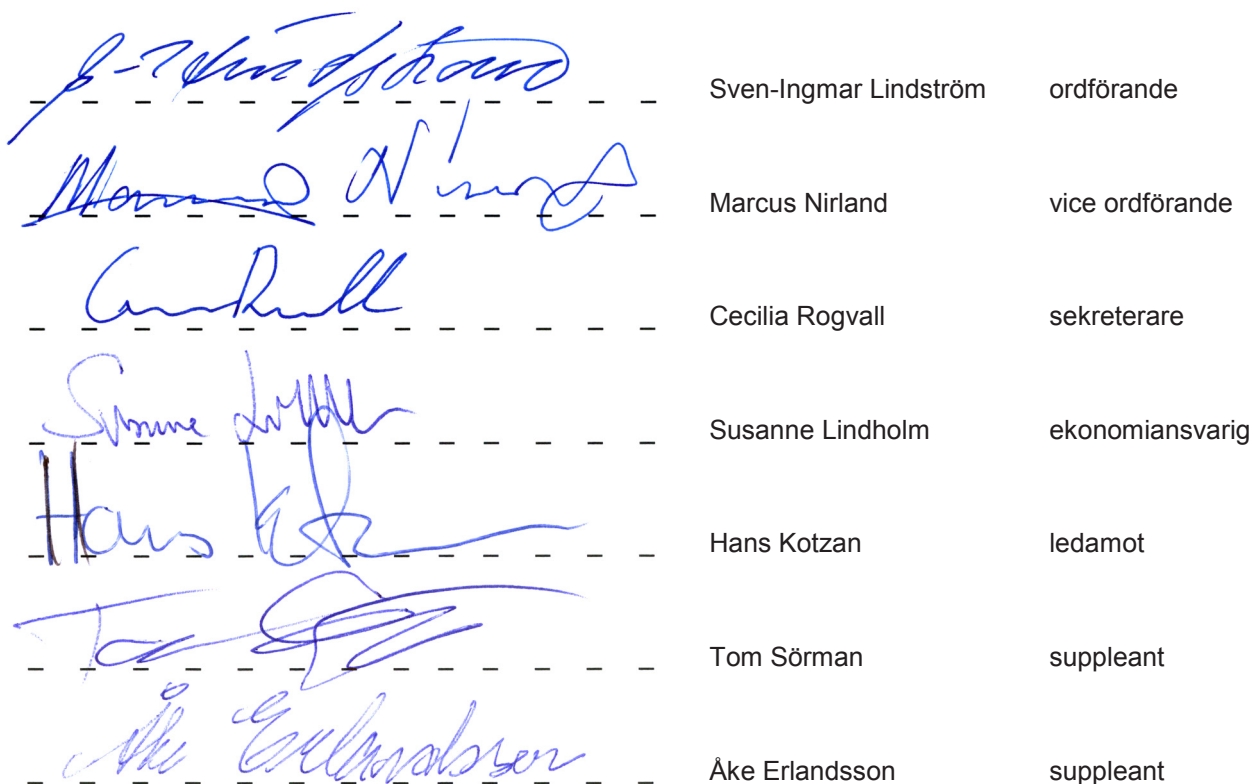 S-I Lindström Sven-Ingmar Lindström ordförande
Marcus Nirland vice ordförande
Cecilia Rogvall sekreterare
Susanne Lindholm ekonomiansvarig
Hans Hans Kotzan ledamot
Tom Tom Sörman suppleant
Åke Erlandsson Åke Erlandsson suppleant